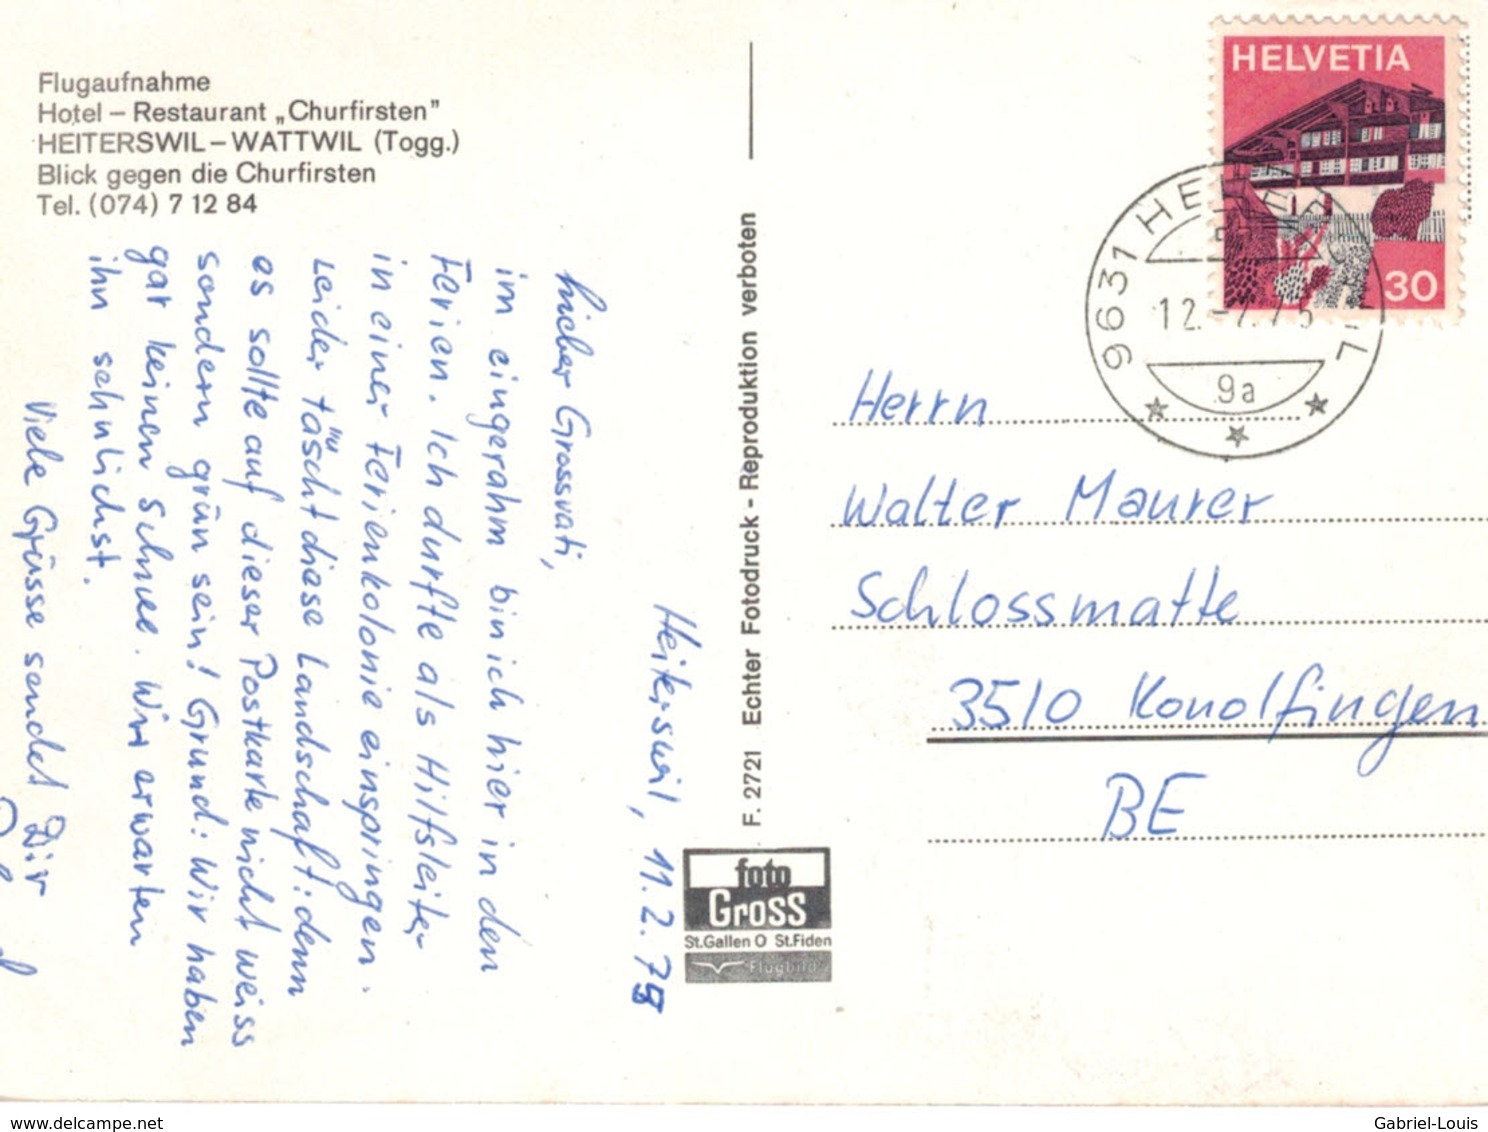 Flugaufnahme
Hotel – Restaurant „Churfirsten”
HEITERSWIL – WATTWIL (Togg.)
Blick gegen die Churfirsten
Tel. (074) 7 12 84
Heiterswil, 11.2.75
Lieber Grossvati,
im eingerahm bin ich hier in den
Ferien. Ich durfte als Hilfsleiter
in einer Ferienkolonie einspringen.
Leider täuscht diese Landschaft: denn
es sollte auf dieser Postkarte nicht weiss
sondern grün sein! Grund: Wir haben
gar keinen Schnee. Wir erwarten
ihn sehnlichst.
Viele Grüsse sendet Dir
F. 2721 Echter Fotodruck - Reproduktion verboten
foto
Gross
St.Gallen O St.Fiden
Flugbild
HELVETIA
30
9631 HE
12.-2.75
9a
Herrn
Walter Maurer
Schlossmatte
3510 Konolfingen
BE
www.delcampe.net
Gabriel-Louis